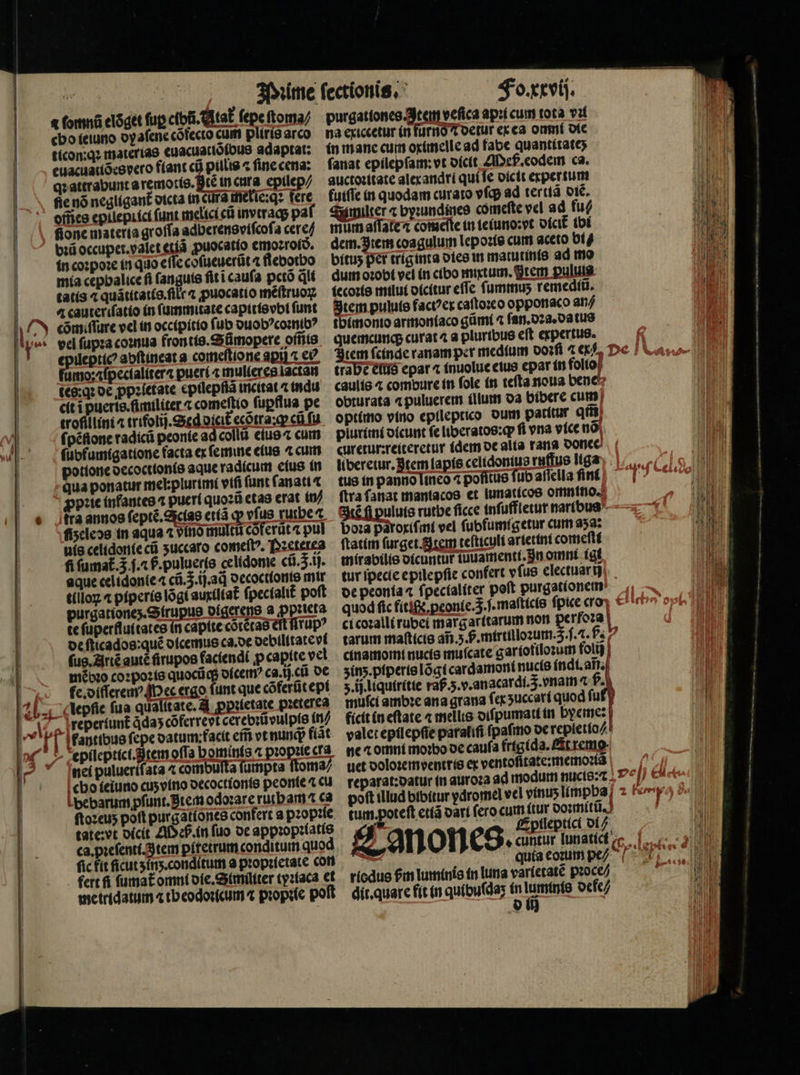 Prime sectionis. Fo.xxvij.
⁊ somnū elōget sup cibū. Utat̄ sepe stoma/
cho ieiuno dyasene cōfecto cum pliris arco
ticon:qꝛ materias euacuatiōibus adaptat:
euacuatiōes vero fiant cū pillis ⁊ sine cena:
qꝛ attrahunt a remotis. Itē in cura epilep/
sie nō negligant̄ dicta in cura melie:qꝛ fere
oēs epileptici sunt melici cū in vtraqꝫ pas
sione materia grossa adherens viscosa cere/
brū occupet. valet etiā ꝓuocatio emoroid.
in corpore in quo esse cōsueuerūt ⁊ flebotho
mia cephalice si sanguis sit i causa pctō q̄li
tatis ⁊ quātitatis. silr̄ ⁊ ꝓuocatio mēstruoꝝ
⁊ cauterisatio in summitate capitis vbi sunt
cōmissure vel in occipitio sub duobꝰ cornibꝰ
vel supra cornua frontis. Sūmopere om̄is
epilepticꝰ abstineat a comestione apij ⁊ eiꝰ
fumo:⁊ specialiter ⁊ pueri ⁊ mulieres lactan
tes:qꝛ de ꝓprietate epilepsiā incitat ⁊ indu
cit i pueris. similiter ⁊ comestio supflua pe
trosillini ⁊ trifolij. Sed dicit ecōtra:ꝙ cū su
spēsione radicū peonie ad collū eius ⁊ cum
subfumigatione facta ex semine eius ⁊ cum
potione decoctionis aque radicum eius in
qua ponatur mel: plurimi visi sunt sanati ⁊
ꝓprie infantes ⁊ pueri quorū etas erat in/
fra annos septē. Scias etiā ꝙ vsus ruthe ⁊
siseleos in aqua ⁊ vino multū cōferūt ⁊ pul
uis celidonie cū zuccaro comestꝰ. Preterea
si sumat̄.ʒ.ſ.⁊ ß. pulueris celidonie cū.ʒ.ij.
aque celidonie ⁊ cū.ʒ.ij. aq̄ decoctionis mir
tilloꝝ ⁊ piperis lōgi auxiliat̄ specialit̄ post
purgationes. Sirupus digerens a ꝓprieta
te superfluitates in capite cōtētas est sirupꝰ
de sticados:que dicemus ca. de debilitate vi
sus. Artē autē sirupos faciendi ꝓ capite vel
mēbro corporis quocūqꝫ dicemꝰ ca. ij. cū de
se. differemꝰ. Hec ergo sunt que cōferūt epi
lepsie sua qualitate. A ꝓprietate preterea
reperiunt̄ q̄daꝫ cōferre vt cerebrū vulpis in/
fantibus sepe datum: facit em̄ vt nunqꝫ fiāt
epileptici. Item ossa hominis ⁊ proprie cra
nei puluerisata ⁊ combusta sumpta stoma/
cho ieiuno cuꝫ vino decoctionis peonie ⁊ cu
bebarum ꝓsunt. Item odorare rutham ⁊ ca
storeuꝫ post purgationes confert a proprie
tate: vt dicit Mes̄. in suo de appropriatis
ca. presenti. Item piretrum conditum quod
sic fit sicut ʒinꝫ. conditum a proprietate con
fert si sumat̄ omni die. Similiter tyriaca et
metridatum ⁊ theodoricum ⁊ proprie post
purgationes. Item vesica apri cum tota vri
na exiccetur in furno ⁊ detur ex ea omni die
in mane cum oximelle ad fabe quantitateꝫ
sanat epilepsiam: vt dicit Mes̄. eodem ca.
auctoritate alexandri qui se dicit expertum
fuisse in quodam curato vsqꝫ ad tertiā diē.
Similiter ⁊ byrundines comeste vel ad su/
mum assate ⁊ comeste in ieiuno: vt dicit̄ ibi
dem. Item coagulum leporis cum aceto bi/
bituꝫ per triginta dies in matutinis ad mo
dum orobi vel in cibo mixtum. Item puluis
iecoris milui dicitur esse summuꝫ remediū.
Item puluis factꝰ ex castoreo opponaco an/
thimonio armoniaco gūmi ⁊ san.dra. datus
quemcunqꝫ curat ⁊ a pluribus est expertus.
Item scinde ranam per medium dorsi ⁊ ex/
trahe eius epar ⁊ inuolue eius epar in folio
caulis ⁊ combure in sole in testa noua bene
obturata ⁊ puluerem illum da bibere cum
optimo vino epileptico dum patitur qm̄
plurimi dicunt se liberatos: ꝙ si vna vice nō
curetur: reiteretur idem de alia rana donec
liberetur. Item lapis celidonius ruffus liga
tus in panno lineo ⁊ positus sub assella sini
stra sanat maniacos et lunaticos omnino.
Itē si puluis ruthe sicce insuffletur naribus
hora paroxismi vel subfumigetur cum aʒa:
statim surget. Item testiculi arietini comesti
mirabilis dicuntur iuuamenti. In omni igi
tur specie epilepsie confert vsus electuarij
de peonia ⁊ specialiter post purgationem
quod sic fit: ℞. peonie.ʒ.ſ. masticis spice cro
ci coralli rubei margaritarum non perfora
tarum masticis añ.ʒ.ß. mirtillorum.ʒ.ſ.⁊.ß.
cinamomi nucis muscate gariofilorum folij
ʒinʒ. piperis lōgi cardamoni nucis indi. añ.
ʒ.ij. liquiritie ras̄.ʒ.v. anacardi.ʒ. vnam ⁊ ß.
musci ambre ana grana sex zuccari quod suf
ficit in estate ⁊ mellis dispumati in hyeme:
valet epilepsie paralisi spasmo de repletio/
ne ⁊ omni morbo de causa frigida. Et remo
uet dolorem ventris ex ventositate: memoriā
reparat: datur in aurora ad modum nucis: ⁊
post illud bibitur ydromel vel vinuꝫ limpha
tum. potest etiā dari sero cum itur dormitū.
Canones. Epileptici di/
cuntur lunatici
quia eorum pe/
riodus ẜm luminis in luna varietatē proce/
dit. quare fit in quibusdaꝫ in luminis defe/
d iij